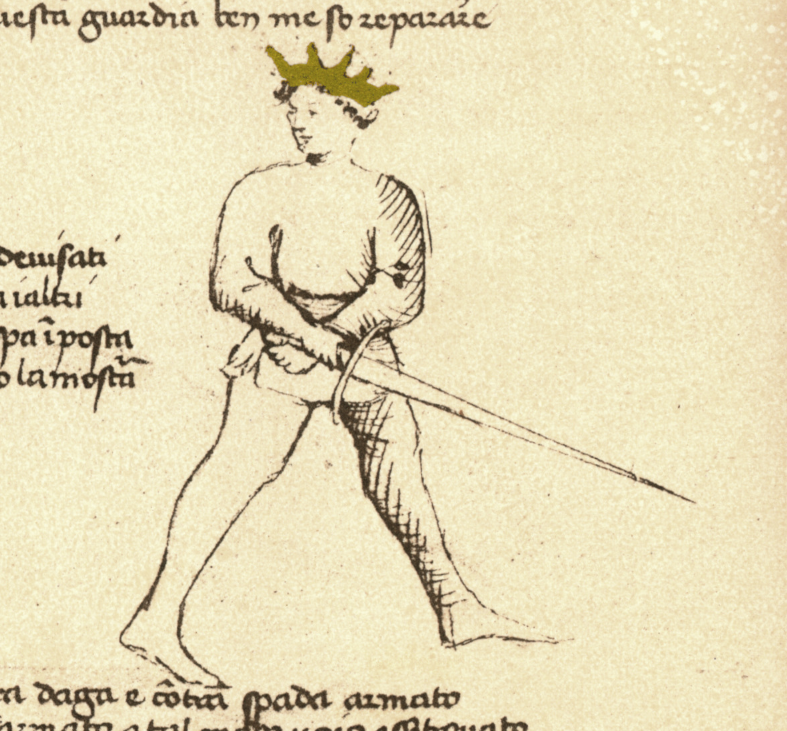 uesta guardia ben me so reparare
deuisati
a ialtri
spa ī posta
o la mostā
ra daga e cōtra spada armato